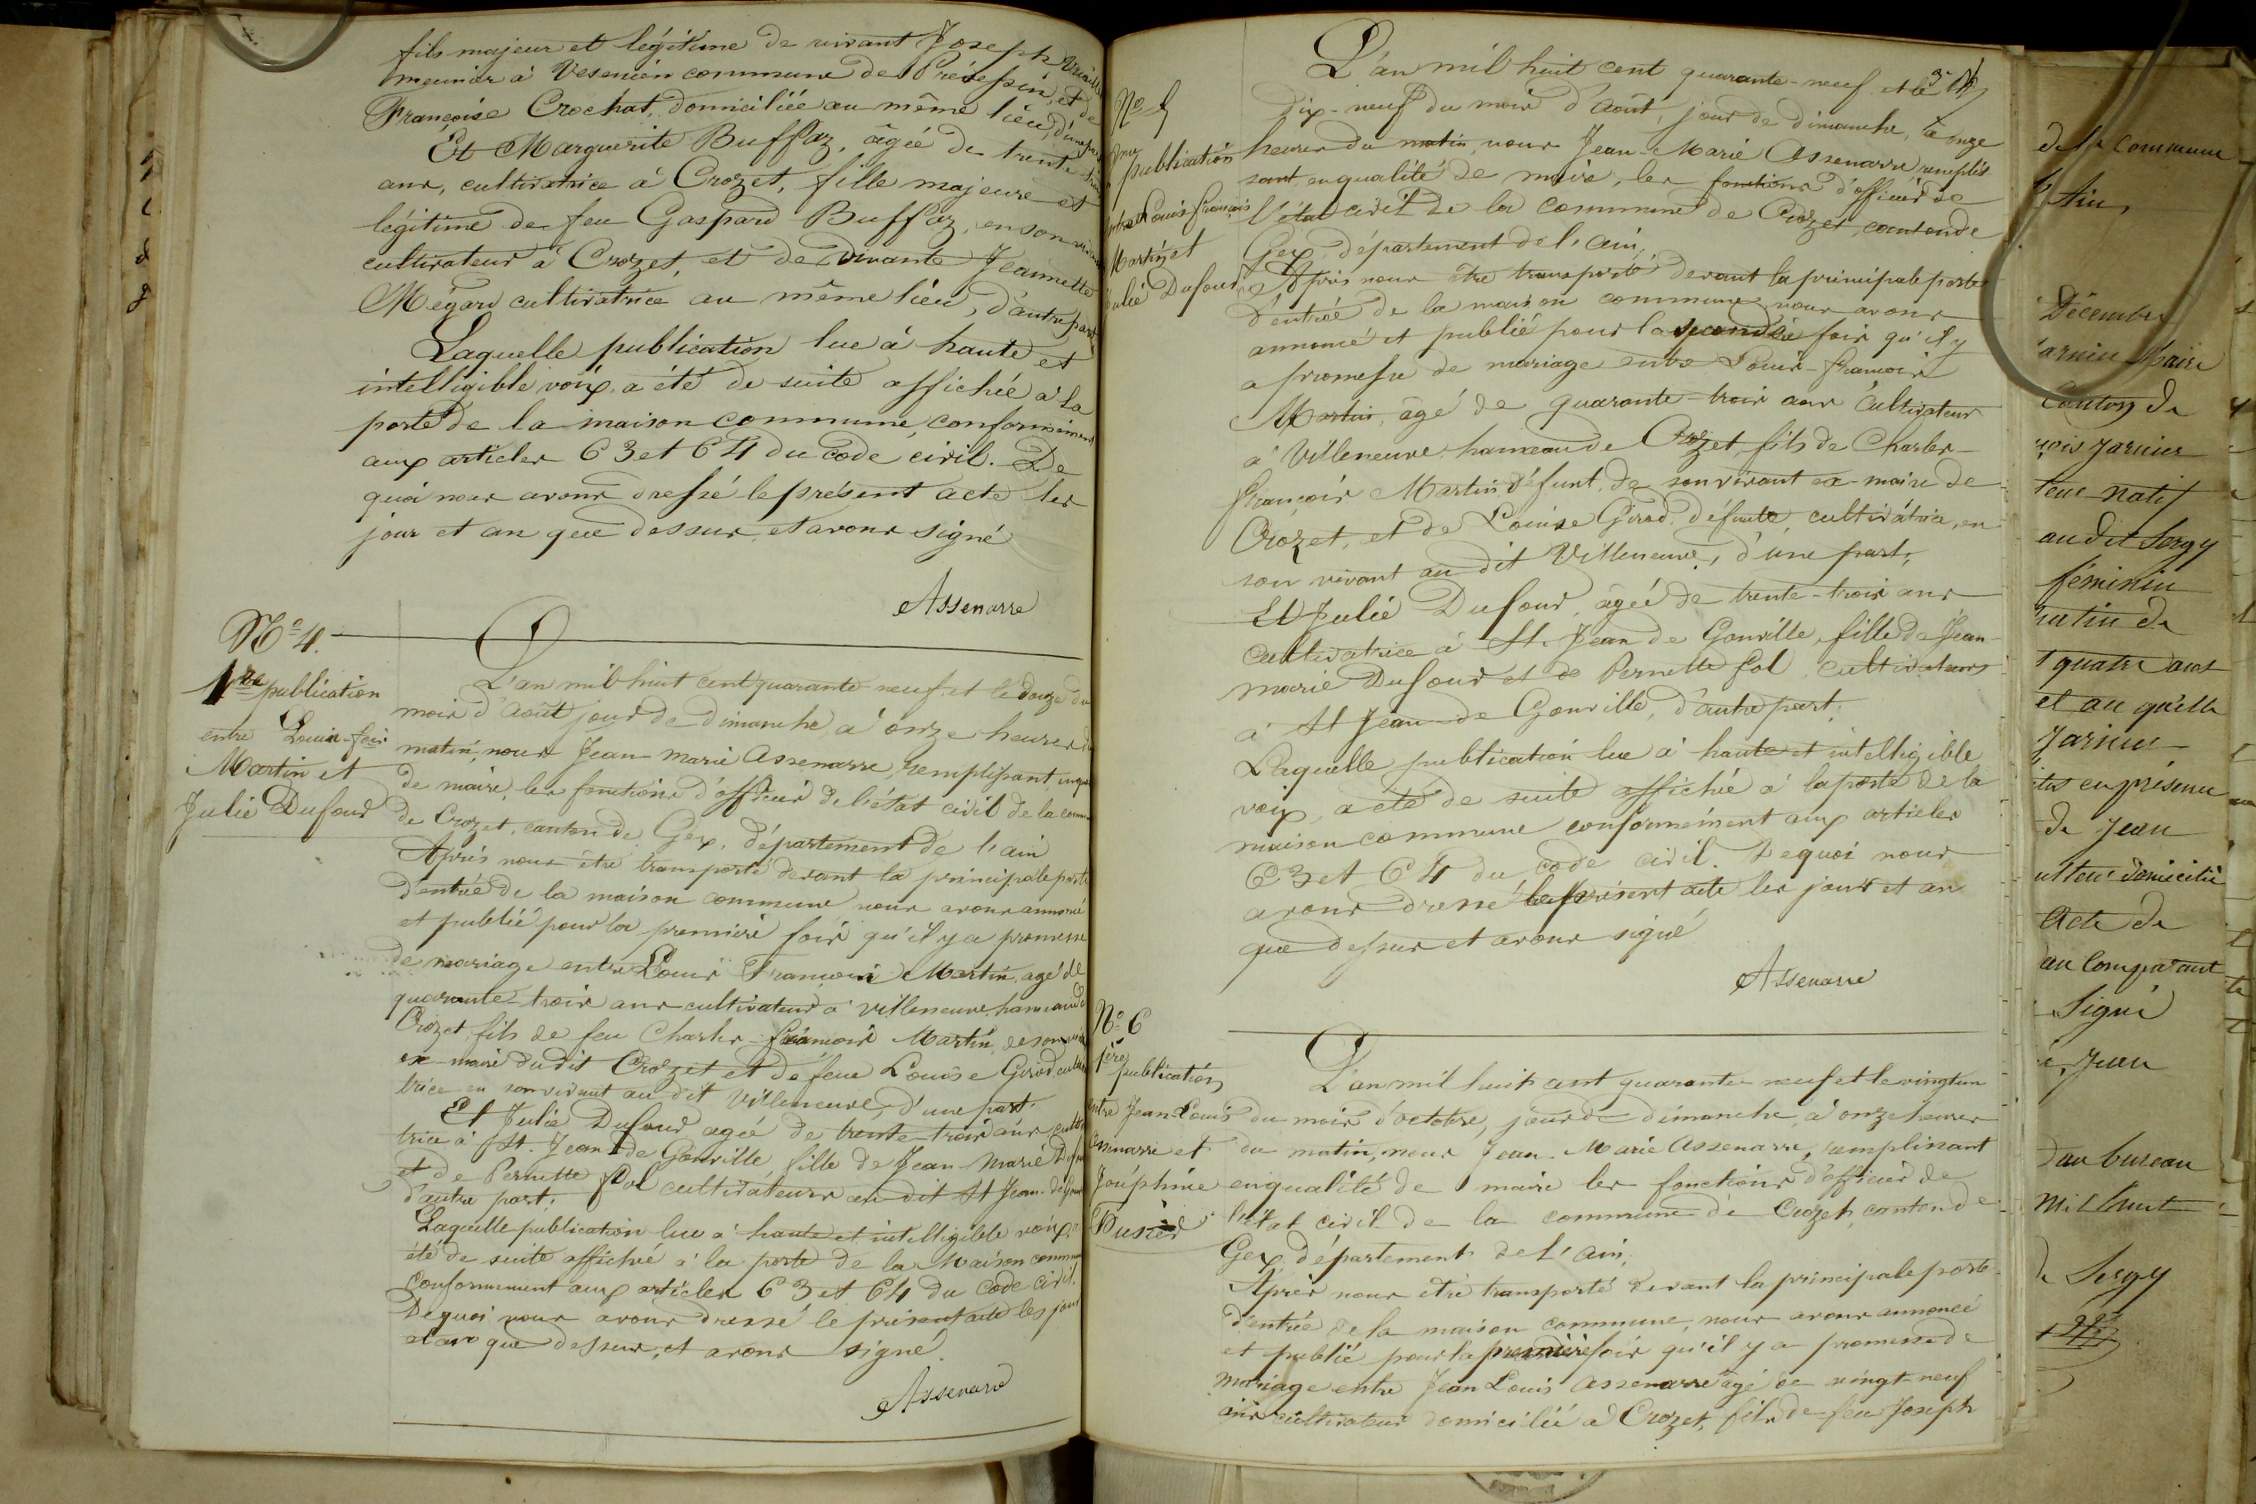 fils majeur et légitime de vivant Joseph
meunier à Vesenein commune de Prévessin, et de
Françoise Crochat, domiciliée au même lieu, d'une part
Et Marguerite Buffaz, âgée de trente
ans, cultivatrice à Crozet, fille majeure et
légitime de feu Gaspard Buffaz, en son vivant
cultivateur à Crozet, et de vivante Jeannette
Mégard cultivatrice au même lieu, d'autre part
Laquelle publication lue à haute et
intelligible voix a été de suite affichée à la
porte de la maison commune, conformément
aux articles 63 et 64 du code civil. De
quoi nous avons dressé le présent acte les
jour et an que dessus, et avons signé
Assenarre
No 4.
1re publication
entre Louis-fois
Martin et
Julie Dufour
L'an mil huit cent quarante neuf et le douze du
mois d'août jour de dimanche à onze heures du
matin, nous Jean-marie Assenarre, remplissant en qualité
de maire, les fonctions d'officier de l'état civil de la commune
de Crozet, canton de Gex, département de l'ain
Après nous être transporté devant la principale porte
d'entrée de la maison commune nous avons annoncé
et publié pour la première fois qu'il y a promesse
de mariage entre Louis François Martin, agé de
quarante-trois ans cultivateur à villeneuve hameau de
Crozet, fils de feu Charles-françois Martin, de son vivant
ex-maire dudit Crozet et de feue Louise Girod cultiva
trice en son vivant au dit Villeneuve, d'une part.
Et Julie Dufour agée de trente-trois ans, cultiva
trice à St. Jean de Gonville, fille de Jean-Marie Dufour
et de Pernette fol cultivateurs au dit St Jean-de-Gonville
d'autre part.
Laquelle publication lue à haute et intelligible voix, a
été de suite affiché à la porte de la Maison commune
conformement aux articles 63 et 64 du Code civil.
De quoi nous avons dressé le présent acte les jour
et an que dessus, et avons signé.
Assenarre
No 5
publication
entre Louis françois
Martin et
Julie Dufour
L'an mil huit cent quarante-neuf et le
dix-neuf du mois d'août, jour de dimanche, à onze
heures du matin, nous Jean-Marie Assenarre, remplis
sant en qualité de maire, les fonctions d'officier de
l'état civil de la commune de Crozet, canton de
Gex, département de l'ain,
Après nous être transporté devant la principale porte
d'entrée de la maison commune, nous avons
annoncé et publié pour la seconde fois qu'il y
a promesse de mariage entre Louis-françois
Martin, âgé de quarante-trois ans cultivateur
à Villeneuve, hameau de Crozet, fils de Charles-
françois Martin défunt, de son vivant ex-maire de
Crozet, et de Louise Girod défunte, cultivatrice, en
son vivant au dit Villeneuve, d'une part,
Et Julie Dufour, âgée de trente-trois ans
cultivatrice à St. Jean de Gonville, fille de Jean-
marie Dufour et de Pernette fol cultivateurs
à St Jean-de Gonville, d'autre part.
Laquelle publication lue à haute et intelligible
voix, a été de suite affichée à la porte de la
maison commune conformément aux articles
63 et 64 du code civil. De quoi nous
avons dressé le présent acte les jour et an
que dessus et avons signé
Assenarre
No 6
1ère
publication
entre Jean-Louis
Assenarre et
Joséphine
L'an mil huit cent quarante-neuf et le vingt un
du mois d'octobre, jour de dimanche, à onze heures
du matin, nous Jean-Marie Assenarre, remplissant
en qualité de maire les fonctions d'officier de
l'état civil de la commune de Crozet, canton de
Gex, département de l'ain,
Après nous être transporté devant la principale porte
d'entrée de la maison commune, nous avons annoncé
et publié pour la première fois qu'il y a promesse de
mariage entre Jean Louis Assenarre agé de vingt-neuf
ans cultivateur domicilié à Crozet, fils de feu Joseph
de la commune
Ain,
Décembre
Maire
Canton de
natif
audit Sergy
féminin
matin de
quatre ans
et au qu'elle
en présence
de Jean
domicilié
Acte de
au Comparant
Signé
Jean
au bureau
mil huit
de Sergy